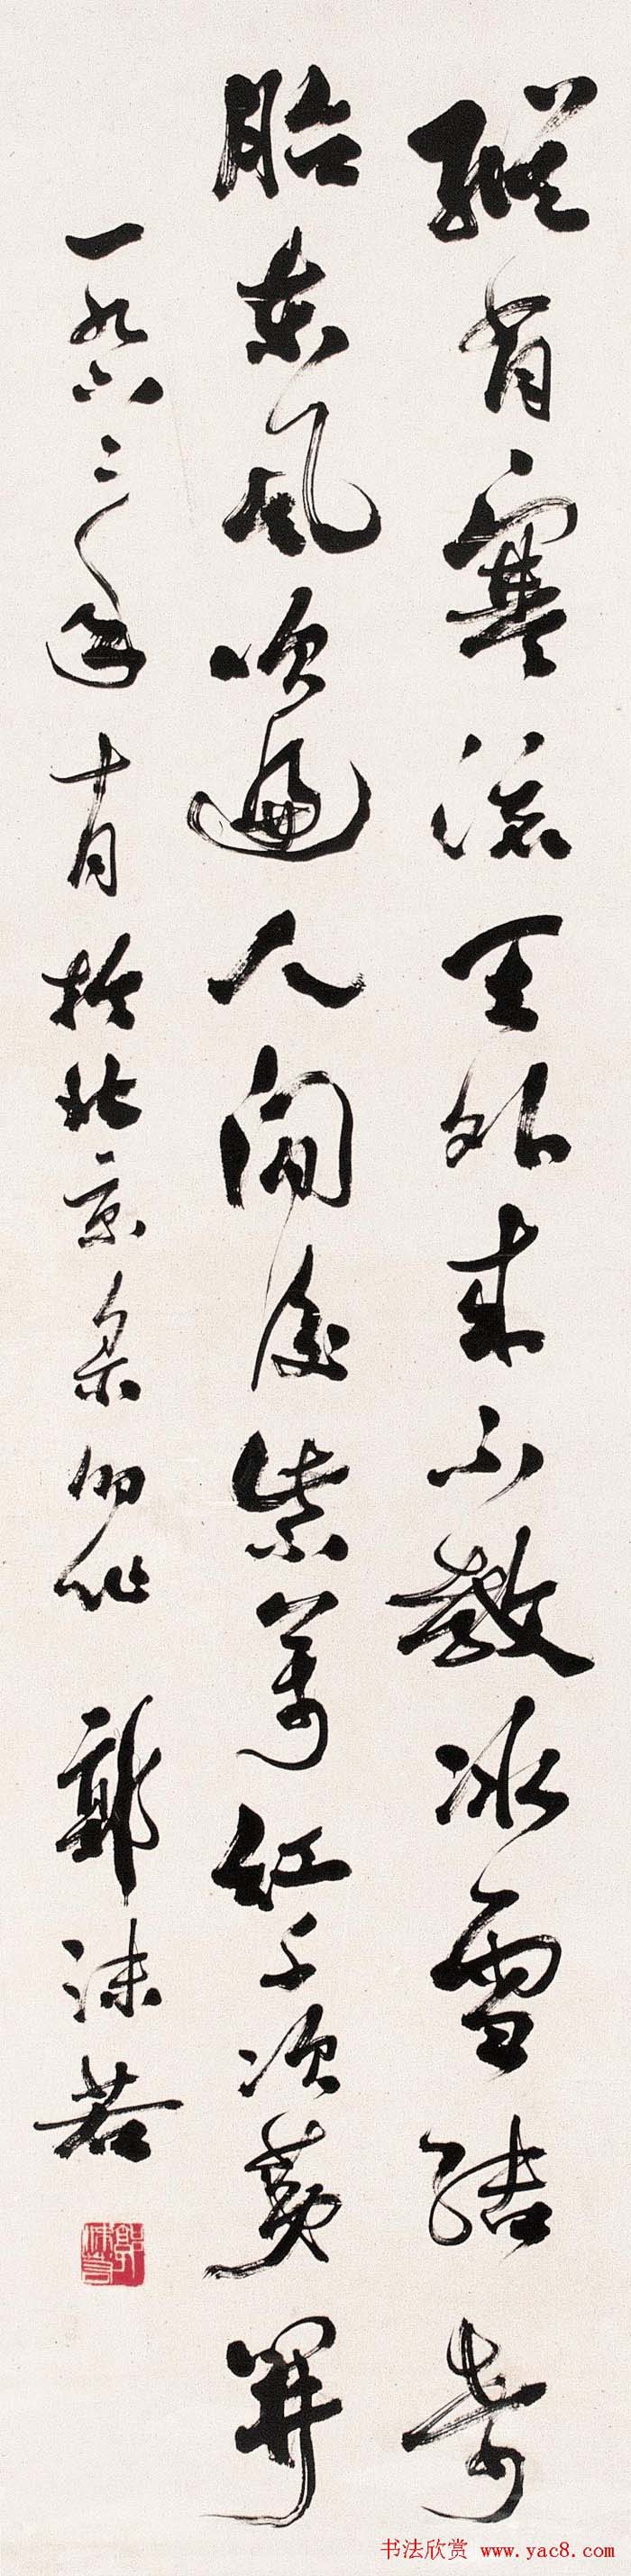 縱有寒流天外来不教冰雪结奇
胎东風吹遍人間後紫萬红千次第開
一九六二年十月於北京 作 郭沫若
郭沫若
书法欣赏 www.yac8.com